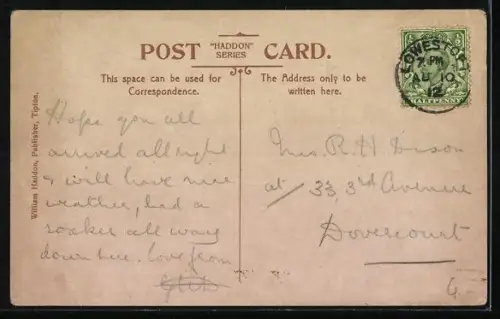 POST "HADDON" SERIES CARD.
This space can be used for
Correspondence.
The Address only to be
written here.
William Haddon, Publisher, Tipton.
Hope you all
arrived allright
& will have nice
weather, had a
soaker all way
down here. Love from
Mrs. R. H Dixon
at / 33, 3rd Avenue
Dovercourt
LOWESTOFT
7 PM
AU 10
12
HALFPENNY